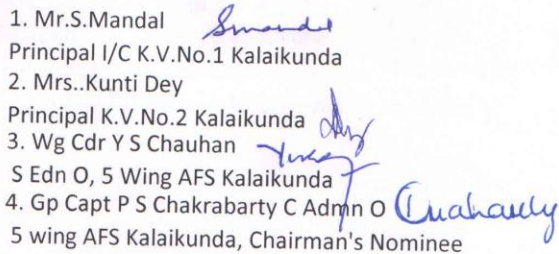 1. Mr.S.Mandal
Principal I/C K.V.No.1 Kalaikunda
2. Mrs..Kunti Dey
Principal K.V.No.2 Kalaikunda
3. Wg Cdr Y S Chauhan
S Edn O, 5 Wing AFS Kalaikunda
4. Gp Capt P S Chakrabarty C Admn O
5 wing AFS Kalaikunda, Chairman's Nominee